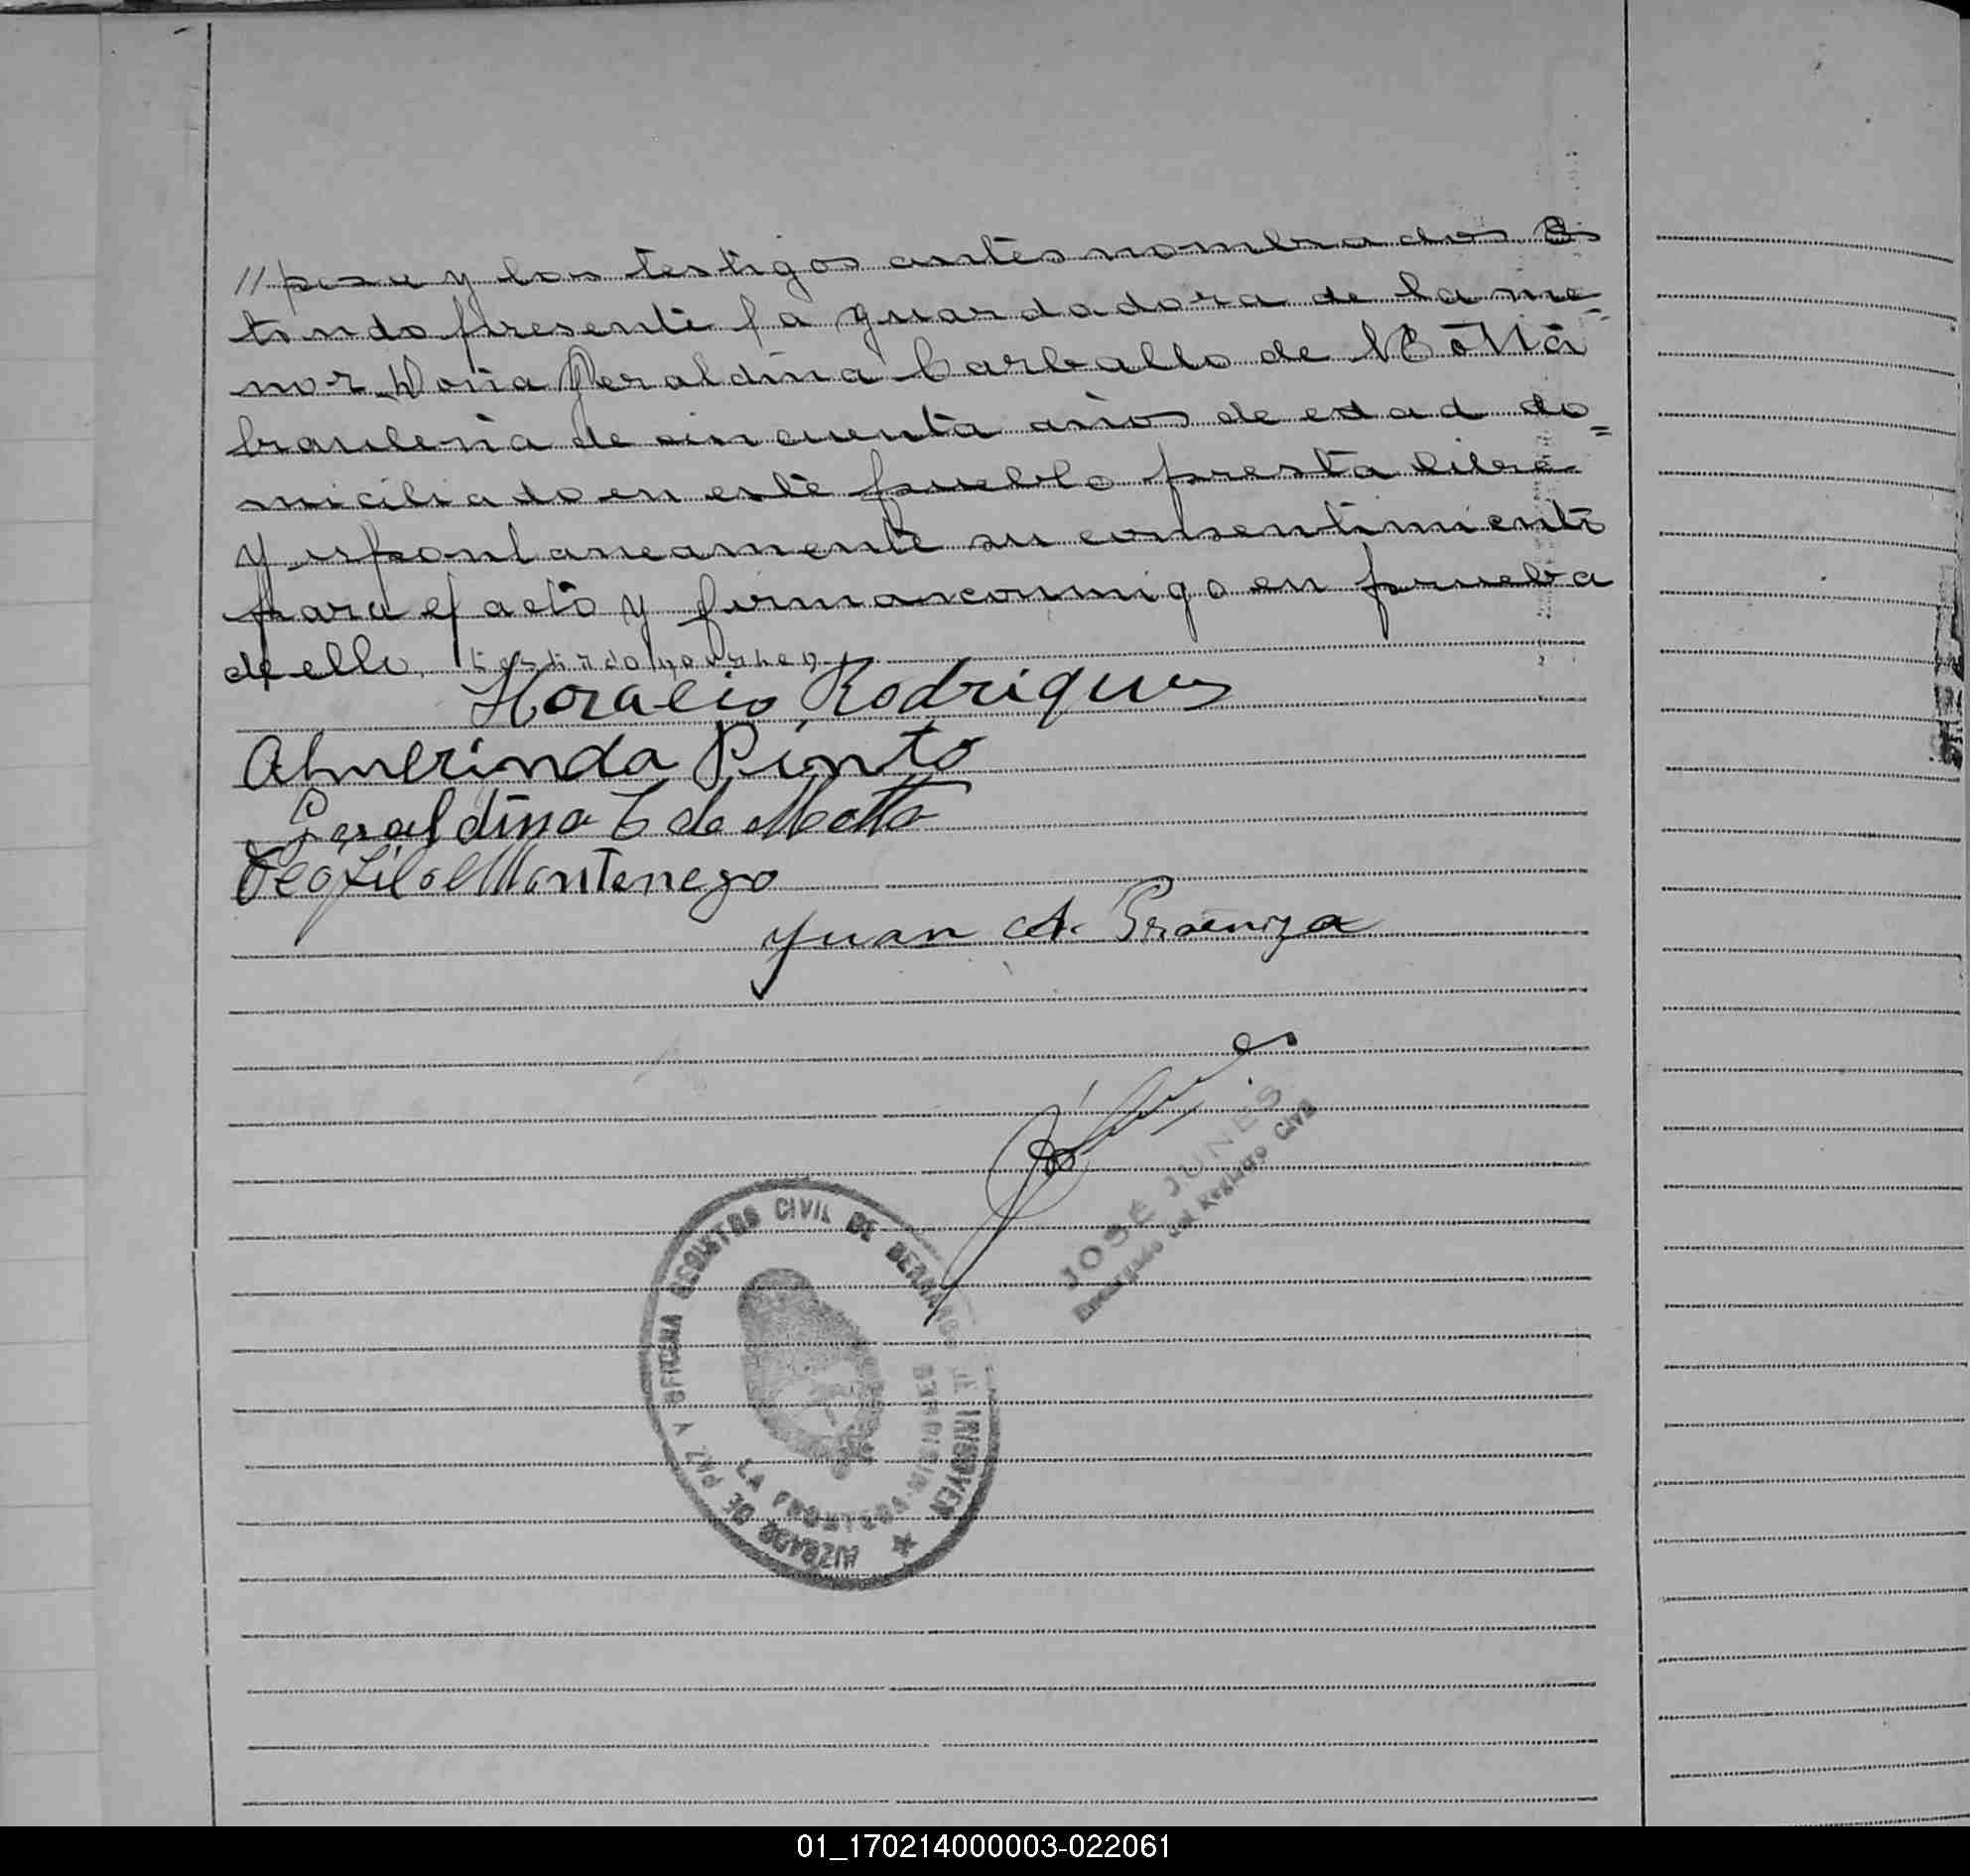 // posa y los testigos antes nombrados Es
tando presente la guardadora de la me-
nor Doña Geraldina Carballo de Motta
brasileña de cincuenta años de edad do=
miciliado en este pueblo presta libre
y espontaneamente su consentimiento
para el acto y firman conmigo en prueba
de ello.
Horacio Rodrigues
Almerinda Pinto
Geraldina C de Motta
Teofilo Montenego
Juan A. Proenza
JOSÉ JUNES
Encargado del Registro Civil
JUZGADO DE PAZ Y OFICINA REGISTRO CIVIL DE BERNARDO DE IRIGOYEN
LA FRONTERA
01_170214000003-022061